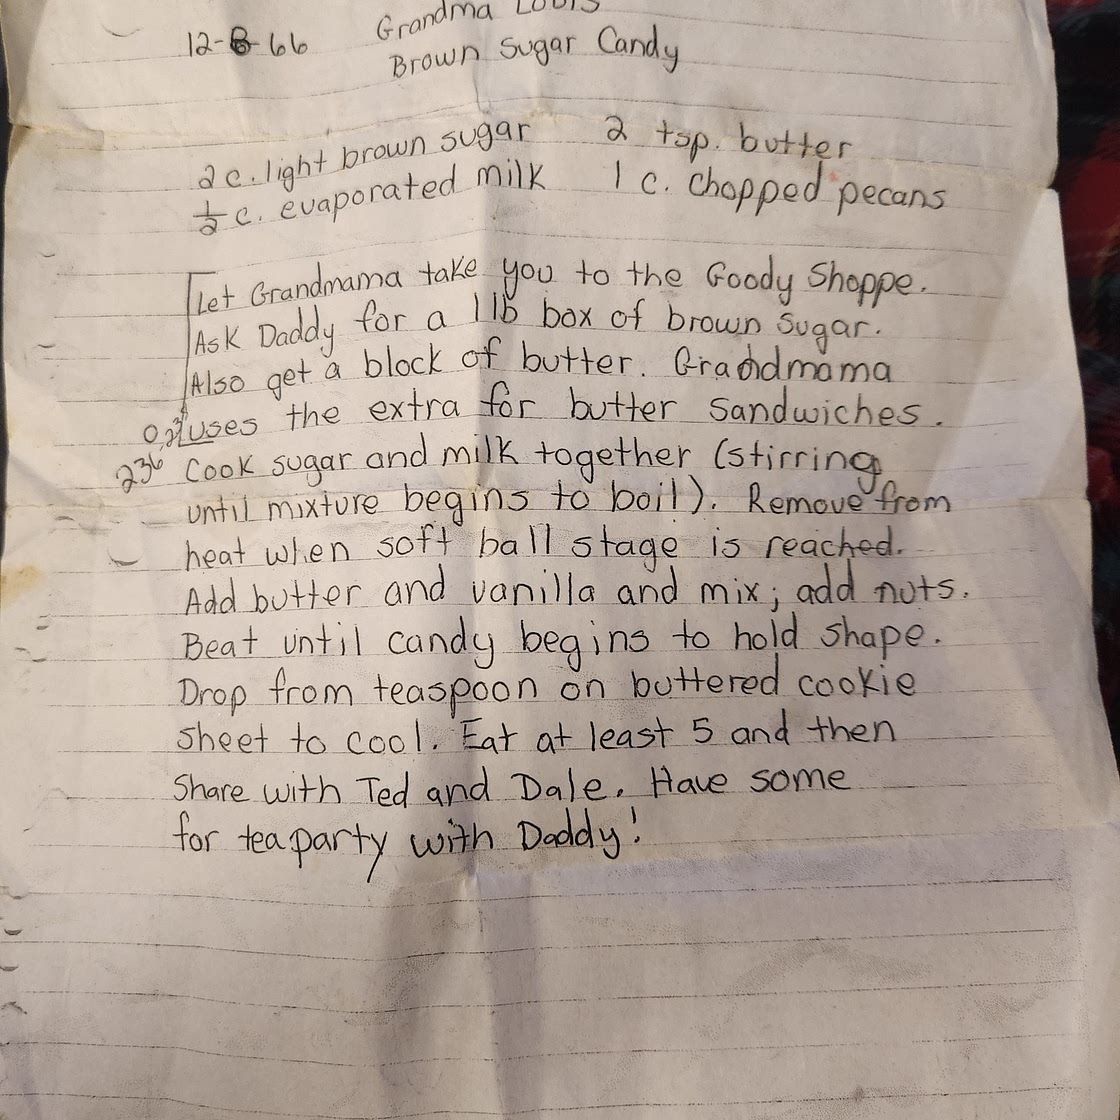 Grandma Lou's
12-8-66
Brown Sugar Candy
2 c. light brown sugar 2 tsp. butter
½ c. evaporated milk 1 c. chopped pecans
Let Grandmama take you to the Goody Shoppe.
Ask Daddy for a 1 lb box of brown sugar.
Also get a block of butter. Grandmama
uses the extra for butter sandwiches.
236 Cook sugar and milk together (stirring
until mixture begins to boil). Remove from
heat when soft ball stage is reached.
Add butter and vanilla and mix; add nuts.
Beat until candy begins to hold shape.
Drop from teaspoon on buttered cookie
sheet to cool. Eat at least 5 and then
share with Ted and Dale. Have some
for tea party with Daddy!